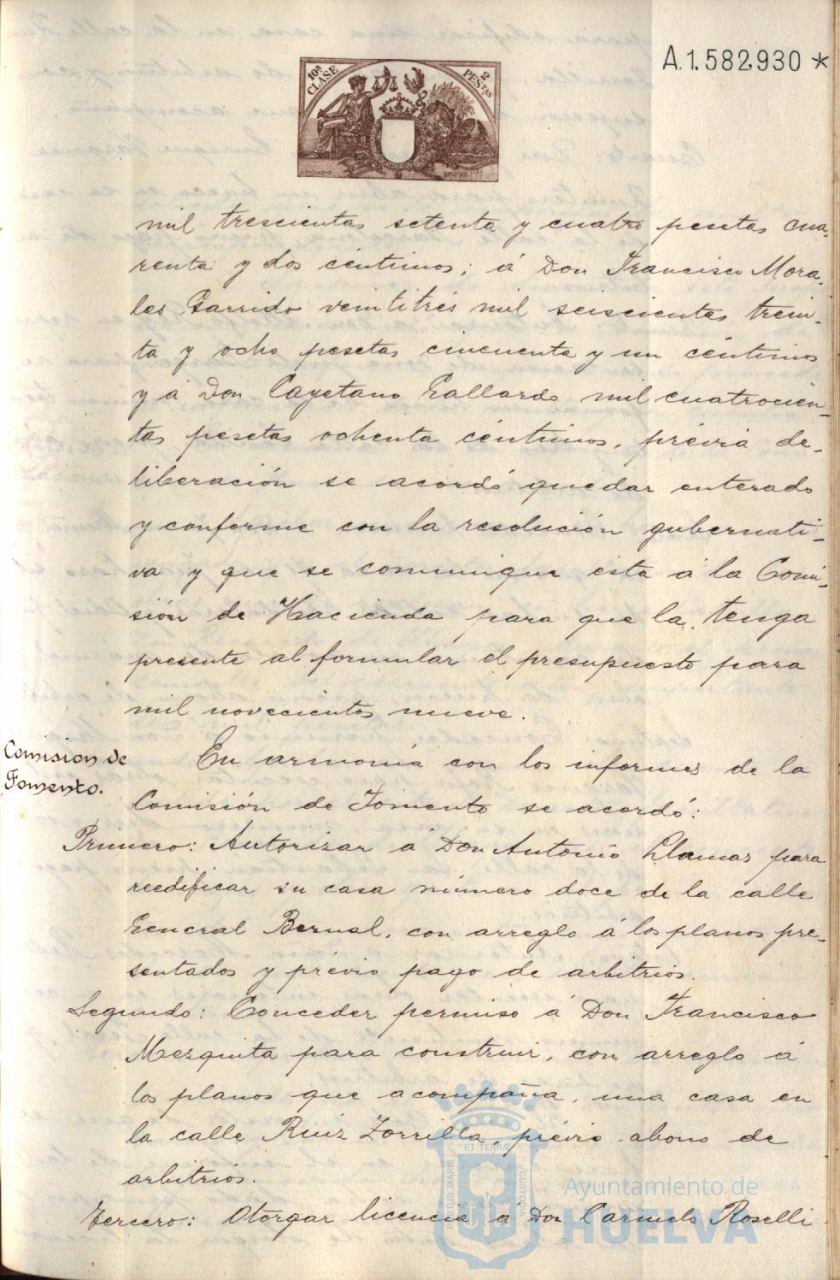 10ª CLASE
2 PESETAS
A.1.582.930 *
mil trescientas setenta y cuatro pesetas cua-
renta y dos céntimos; á Don Francisco Mora-
les Garrido veintitrés mil seiscientas trein-
ta y ocho pesetas cincuenta y un céntimos
y á Don Cayetano Gallardo mil cuatrocien-
tas pesetas ochenta céntimos, prévia de-
liberación se acordó quedar enterado
y conforme con la resolución gubernati-
va y que se comunique esta á la Comi-
sión de Hacienda para que la tenga
presente al formular el presupuesto para
mil novecientos nueve.
Comisión de
Fomento.
En armonía con los informes de la
Comisión de Fomento se acordó:
Primero: Autorizar á Don Antonio Llamas para
reedificar su casa número doce de la calle
General Bernal, con arreglo á los planos pre-
sentados y prévio pago de arbitrios.
Segundo: Conceder permiso á Don Francisco
Mezquita para construir, con arreglo á
los planos que acompaña, una casa en
la calle Ruiz Zorrilla, prévio abono de
arbitrios.
Tercero: Otorgar licencia á Don Carmelo Roselli
Ayuntamiento de
HUELVA